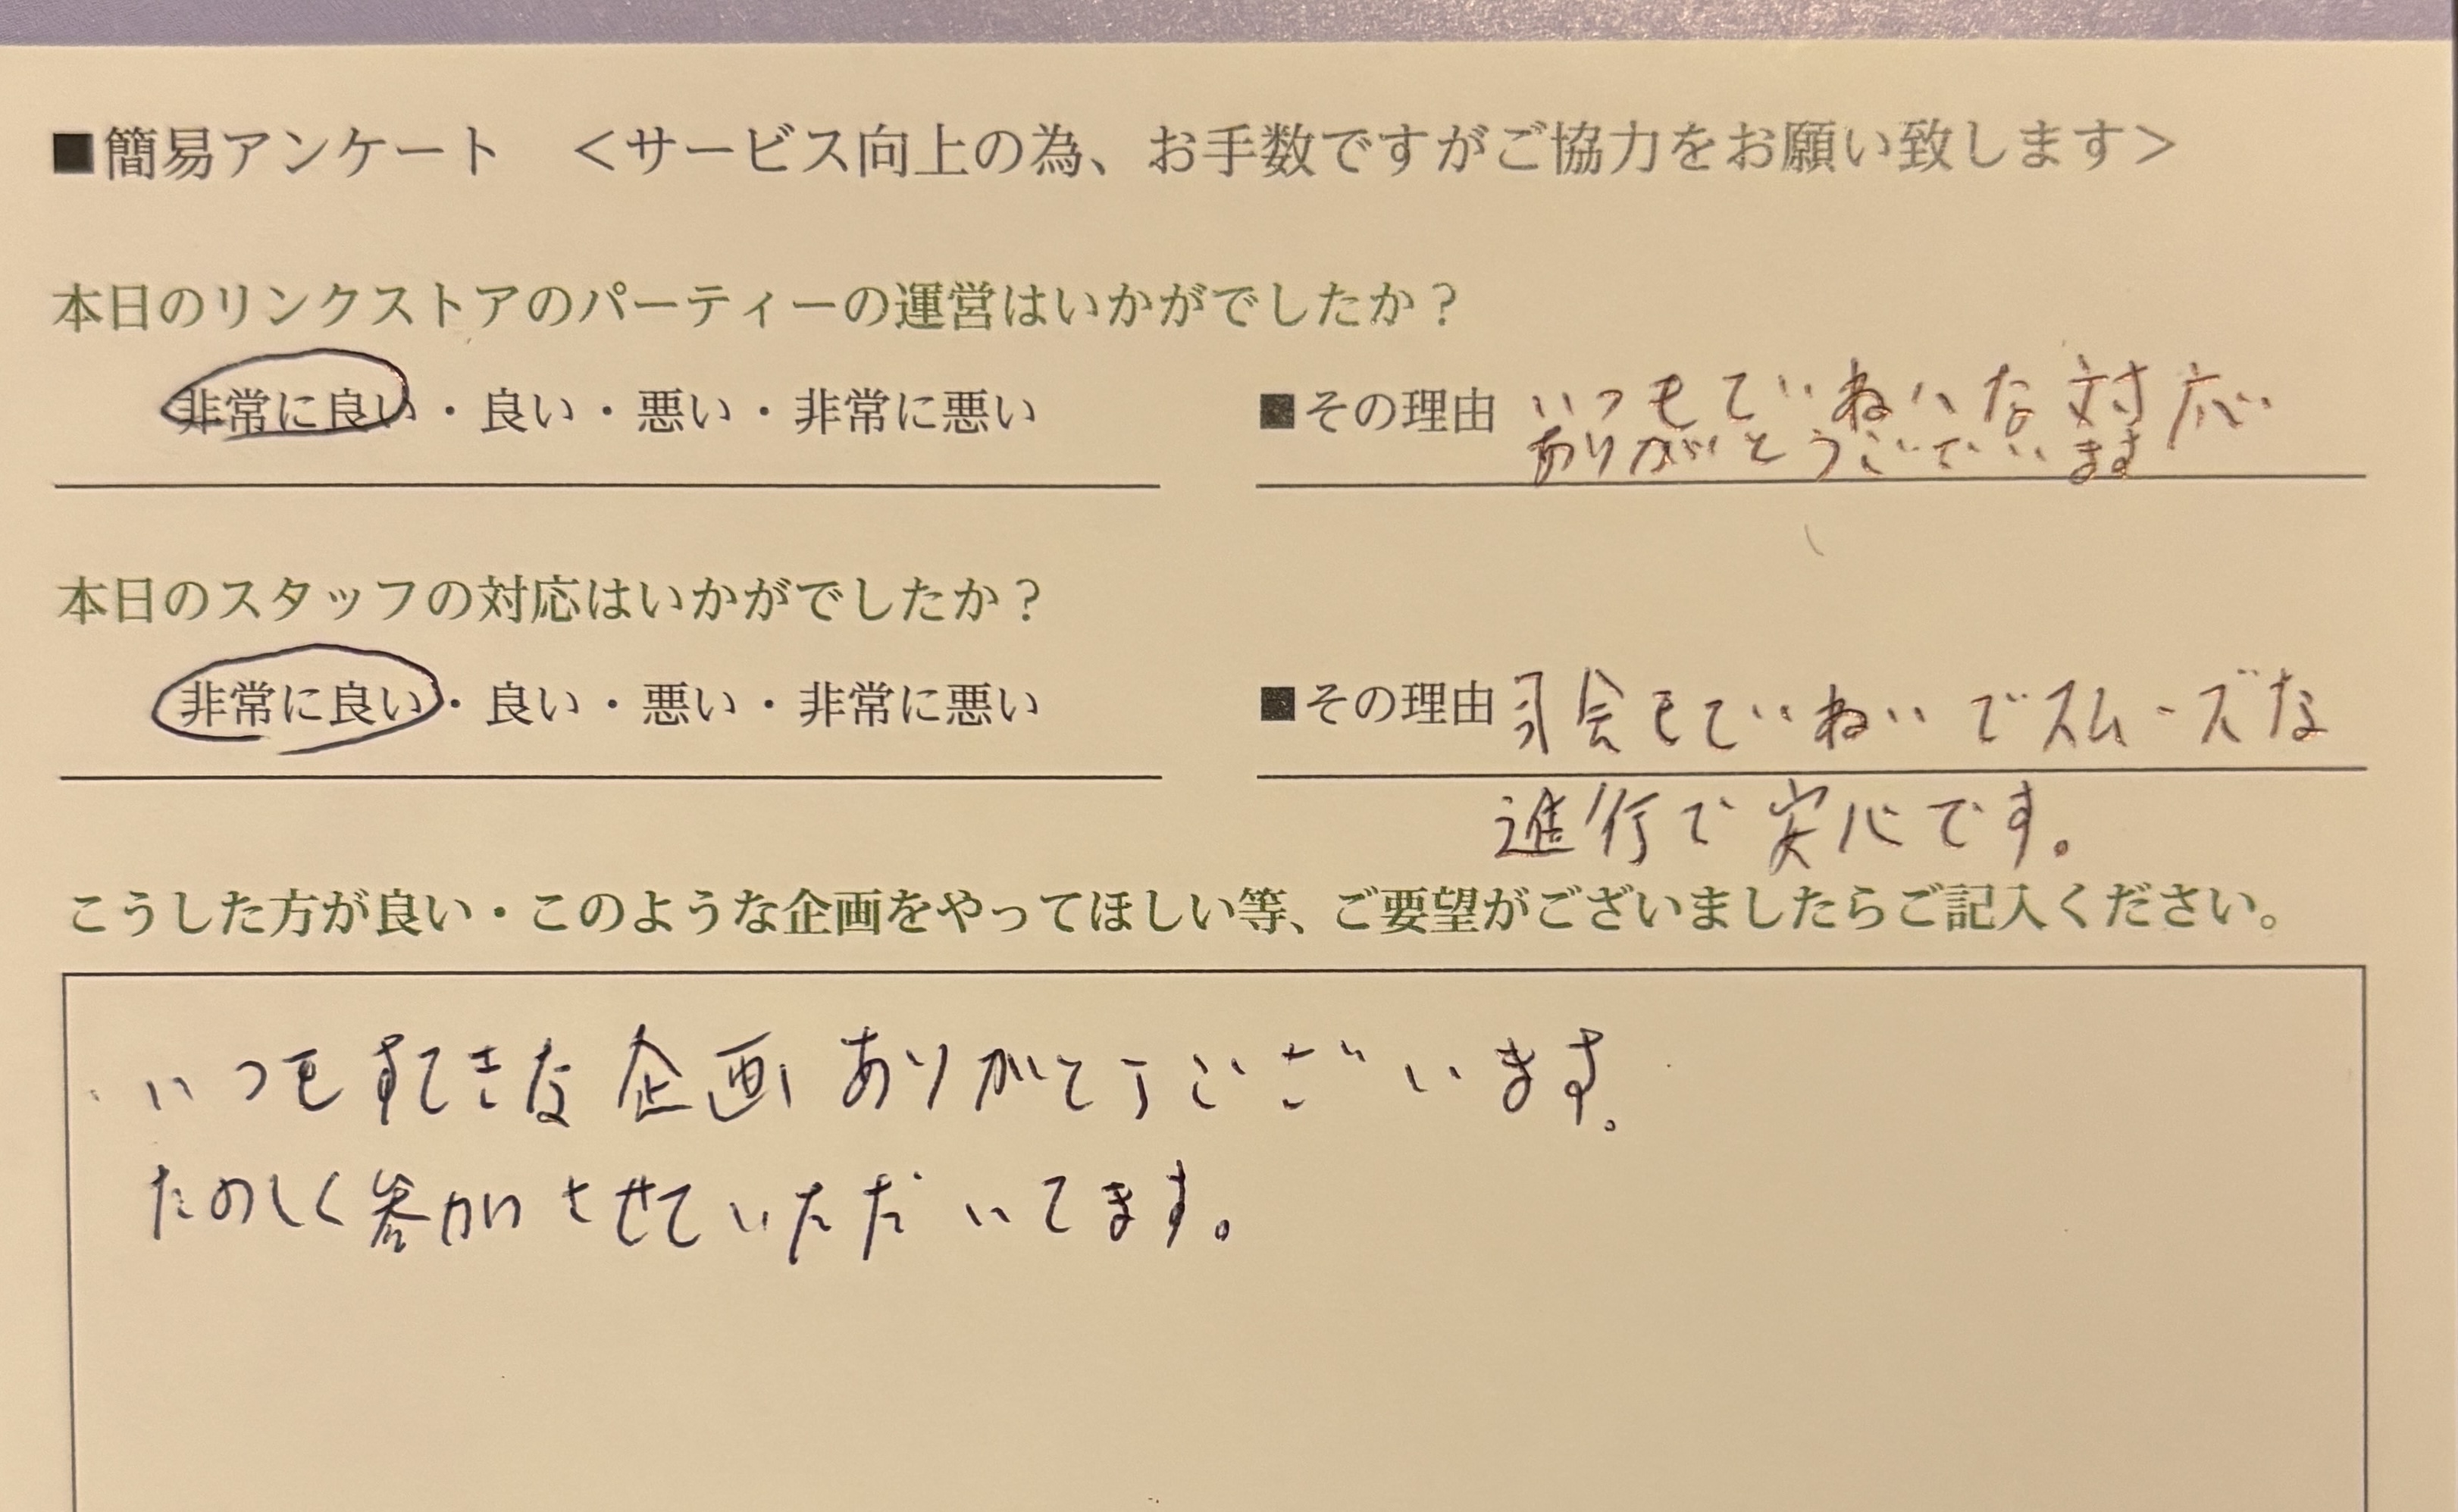 ■簡易アンケート　＜サービス向上の為、お手数ですがご協力をお願い致します＞
本日のリンクストアのパーティーの運営はいかがでしたか？
非常に良い・良い・悪い・非常に悪い
■その理由 いつもていねいな対応
ありがとうございます
本日のスタッフの対応はいかがでしたか？
非常に良い・良い・悪い・非常に悪い
■その理由 司会もていねいでスムーズな
進行で安心です。
こうした方が良い・このような企画をやってほしい等、ご要望がございましたらご記入ください。
いつもすてきな企画ありがとうございます。
たのしく参加させていただいてます。